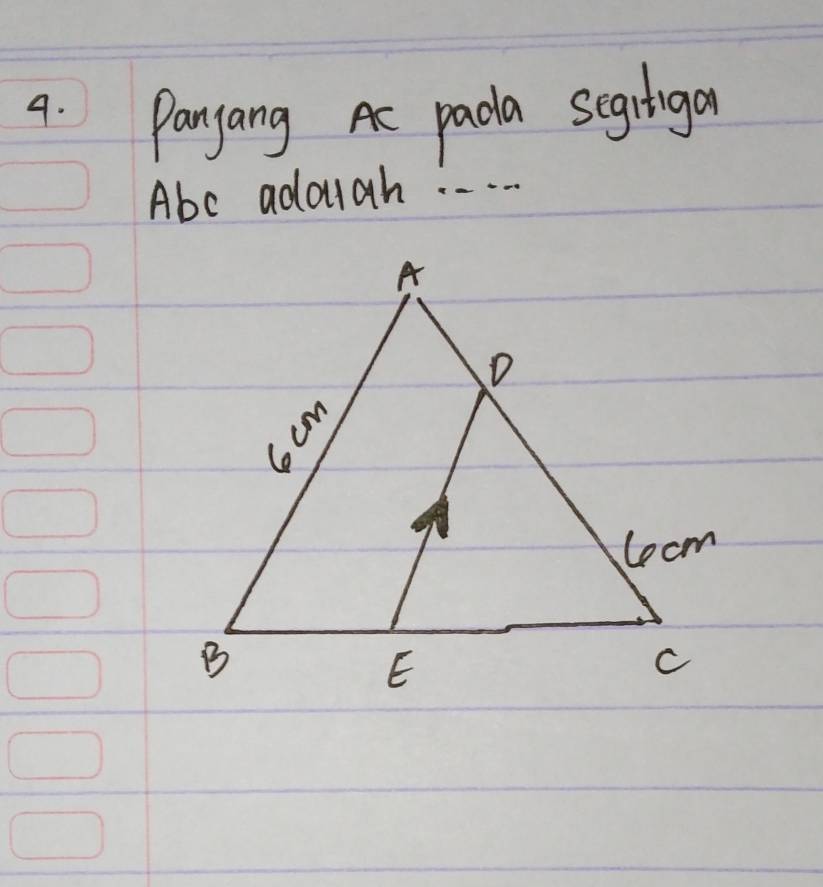 4. Panjang AC pada segitiga
Abc adalah .....
A
D
6cm
6cm
B
E
C